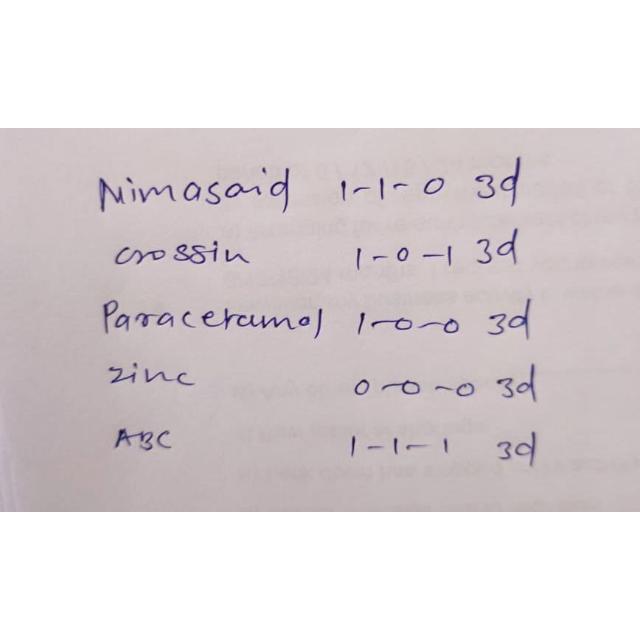 Nimasaid 1-1-0 3d
crossin 1-0-1 3d
Paracetamol 1-0-0 3d
zinc 0-0-0 3d
ABC 1-1-1 3d